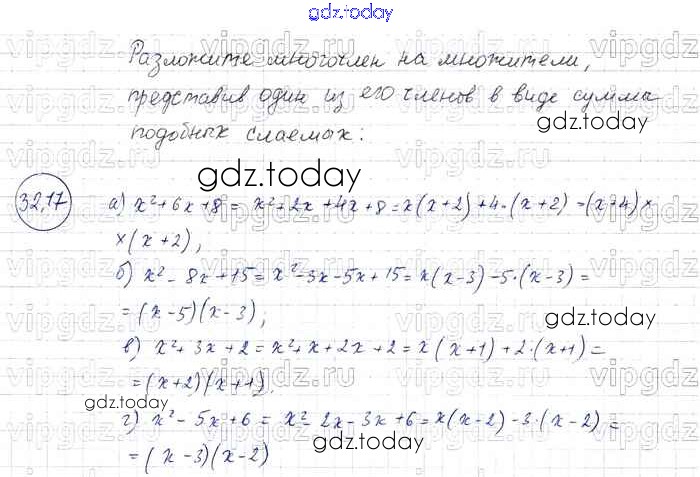 gdz.today
Разложите многочлен на множители,
представив один из его членов в виде суммы
подобных слаемых:
gdz.today
gdz.today
32,17
а) x²+6x+8 = x²+2x+4x+8=x(x+2)+4·(x+2)=(x+4)×
×(x+2);
б) x²-8x+15=x²-3x-5x+15=x(x-3)-5·(x-3)=
=(x-5)(x-3);
gdz.today
в) x²+3x+2=x²+x+2x+2=x(x+1)+2·(x+1)=
=(x+2)(x+1).
gdz.today
г) x²-5x+6=x²-2x-3x+6=x(x-2)-3·(x-2)=
gdz.today
=(x-3)(x-2)
vipgdz.ru